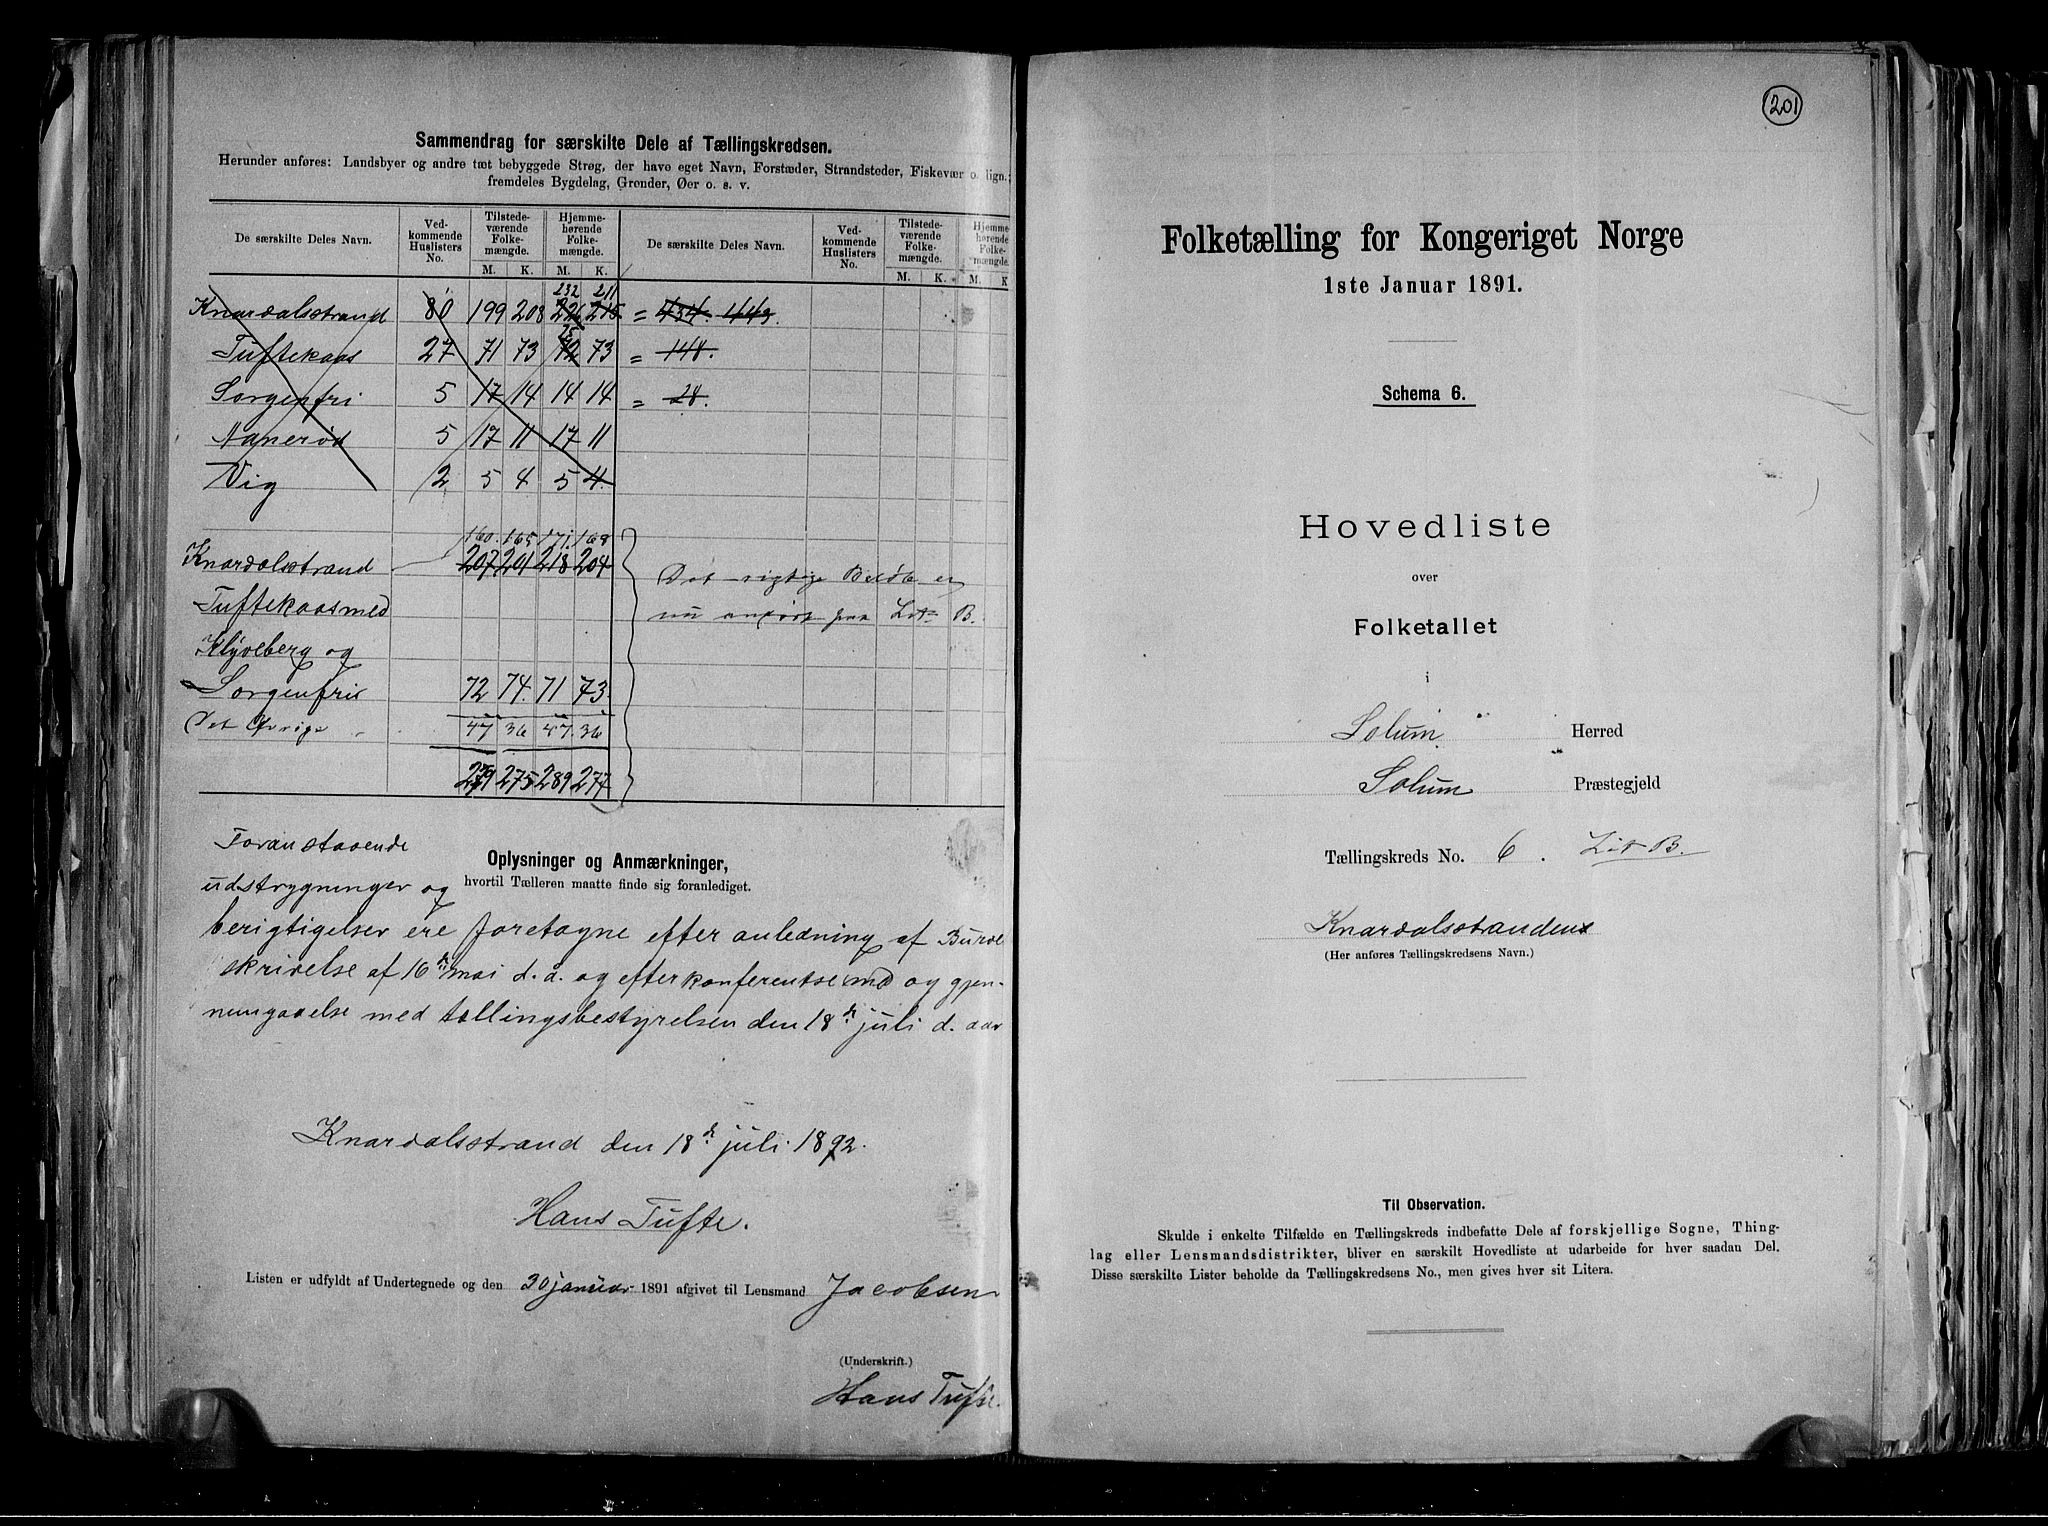 Sammendrag for særskilte Dele af Tællingskredsen.
Herunder anføres: Landsbyer og andre tæt bebyggede Strøg, der have eget Navn, Forstæder, Strandsteder, Fiskevær o. lign.;
fremdeles Bygdelag, Grender, Øer o. s. v.
De særskilte Deles Navn. Ved-kommende Huslisters No. Tilstede-værende Folke-mængde. Hjemme-hørende Folke-mængde. De særskilte Deles Navn. Ved-kommende Huslisters No. Tilstede-værende Folke-mængde. Hjemme-hørende Folke-mængde.
M. K. M. K. M. K. M. K
232 211
Knardalsstrand 80 199 208 226 215 = 434. 443.
75
Tuftekaas 27 71 73 72 73 = 148.
Sorgenfri 5 17 14 14 14 = 28.
Aanerød 5 17 11 17 11
Vig 2 5 4 5 4.
160. 165 171. 168
Knardalsstrand 207 201 218 204
Det rigtige Beløb er
Tuftekaas med
nu anført paa Litr B.
Klyveberg og
Sorgenfri 72 74. 71 73.
Det Øvrige 47 36 47. 36
279 275 289 277
Foranstaaende
Oplysninger og Anmærkninger,
hvortil Tælleren maatte finde sig foranlediget.
udstrygninger og
berigtigelser ere foretagne efter anledning af Burde
skrivelse af 16de mai d. a. og efter konferentse med og gjen-
nemgaaelse med tællingsbestyrelsen den 18de juli d. aar
Knardalsstrand den 18de juli 1892.
Hans Tufte.
Listen er udfyldt af Undertegnede og den 30 januar 1891 afgivet til Lensmand Jacobsen
(Underskrift.)
Hans Tufte.
201
Folketælling for Kongeriget Norge
1ste Januar 1891.
Schema 6.
Hovedliste
over
Folketallet
i
Solum Herred
Solum Præstegjeld
Tællingskreds No. 6. Litr B.
Knardalsstranden
(Her anføres Tællingskredsens Navn.)
Til Observation.
Skulde i enkelte Tilfælde en Tællingskreds indbefatte Dele af forskjellige Sogne, Thing-
lag eller Lensmandsdistrikter, bliver en særskilt Hovedliste at udarbeide for hver saadan Del.
Disse særskilte Lister beholde da Tællingskredsens No., men gives hver sit Litera.